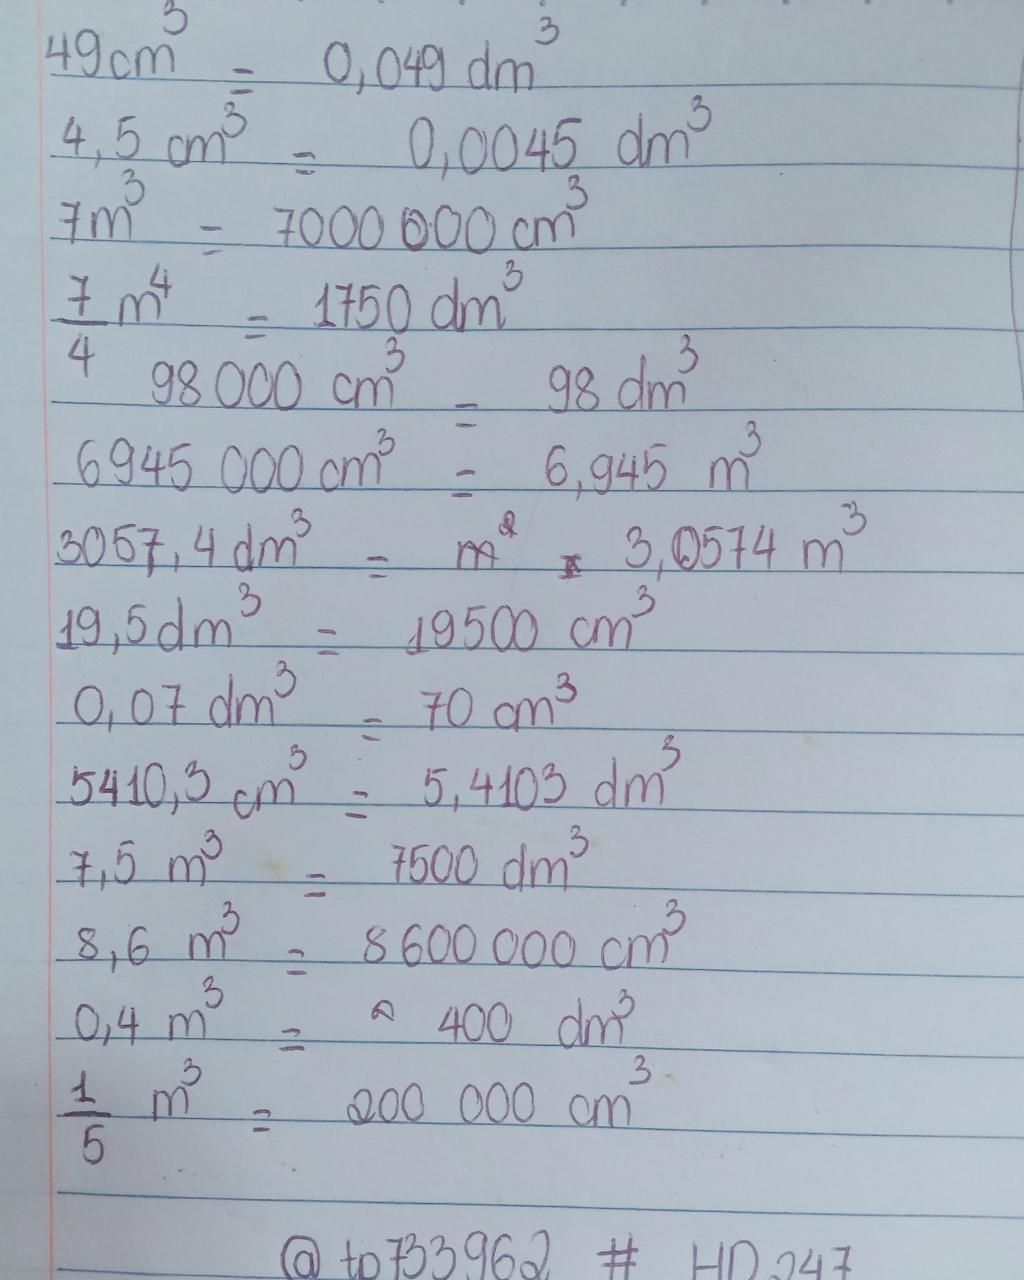 49cm³ = 0,049 dm³
4,5 cm³ = 0,0045 dm³
7m³ = 7000 000 cm³
7/4 m⁴ = 1750 dm³
98 000 cm³ = 98 dm³
6945 000 cm³ = 6,945 m³
3057,4 dm³ = m² 3,0574 m³
19,5 dm³ = 19500 cm³
0,07 dm³ = 70 cm³
5410,3 cm³ = 5,4103 dm³
7,5 m³ = 7500 dm³
8,6 m³ = 8 600 000 cm³
0,4 m³ = 400 dm³
1/5 m³ = 200 000 cm³
@to733962 # HD247